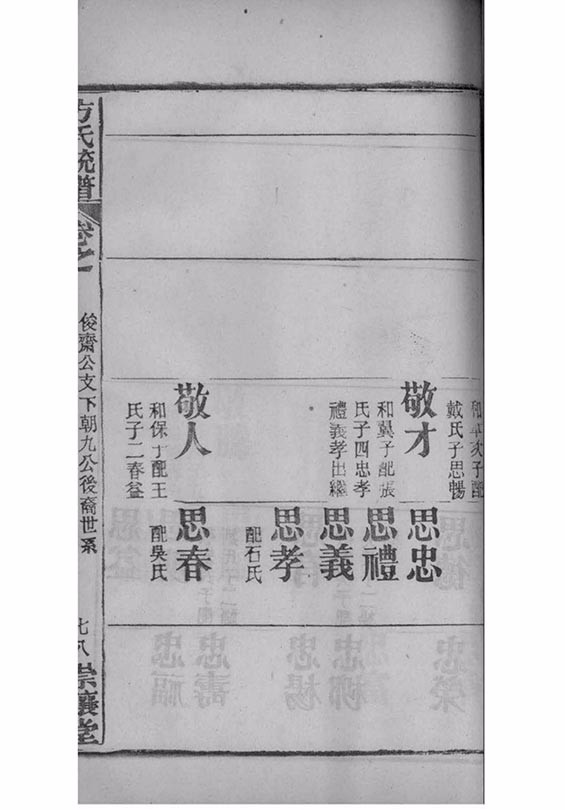 和平次子配
戴氏子思暢
敬才
和翼子配張
氏子四忠孝
禮義孝出繼
敬人
和保子配王
氏子二春益
思忠
思禮
思義
思孝
配石氏
思春
配吳氏
方氏統譜
卷之一
俊齋公支下朝九公後裔世系
七八
崇讓堂